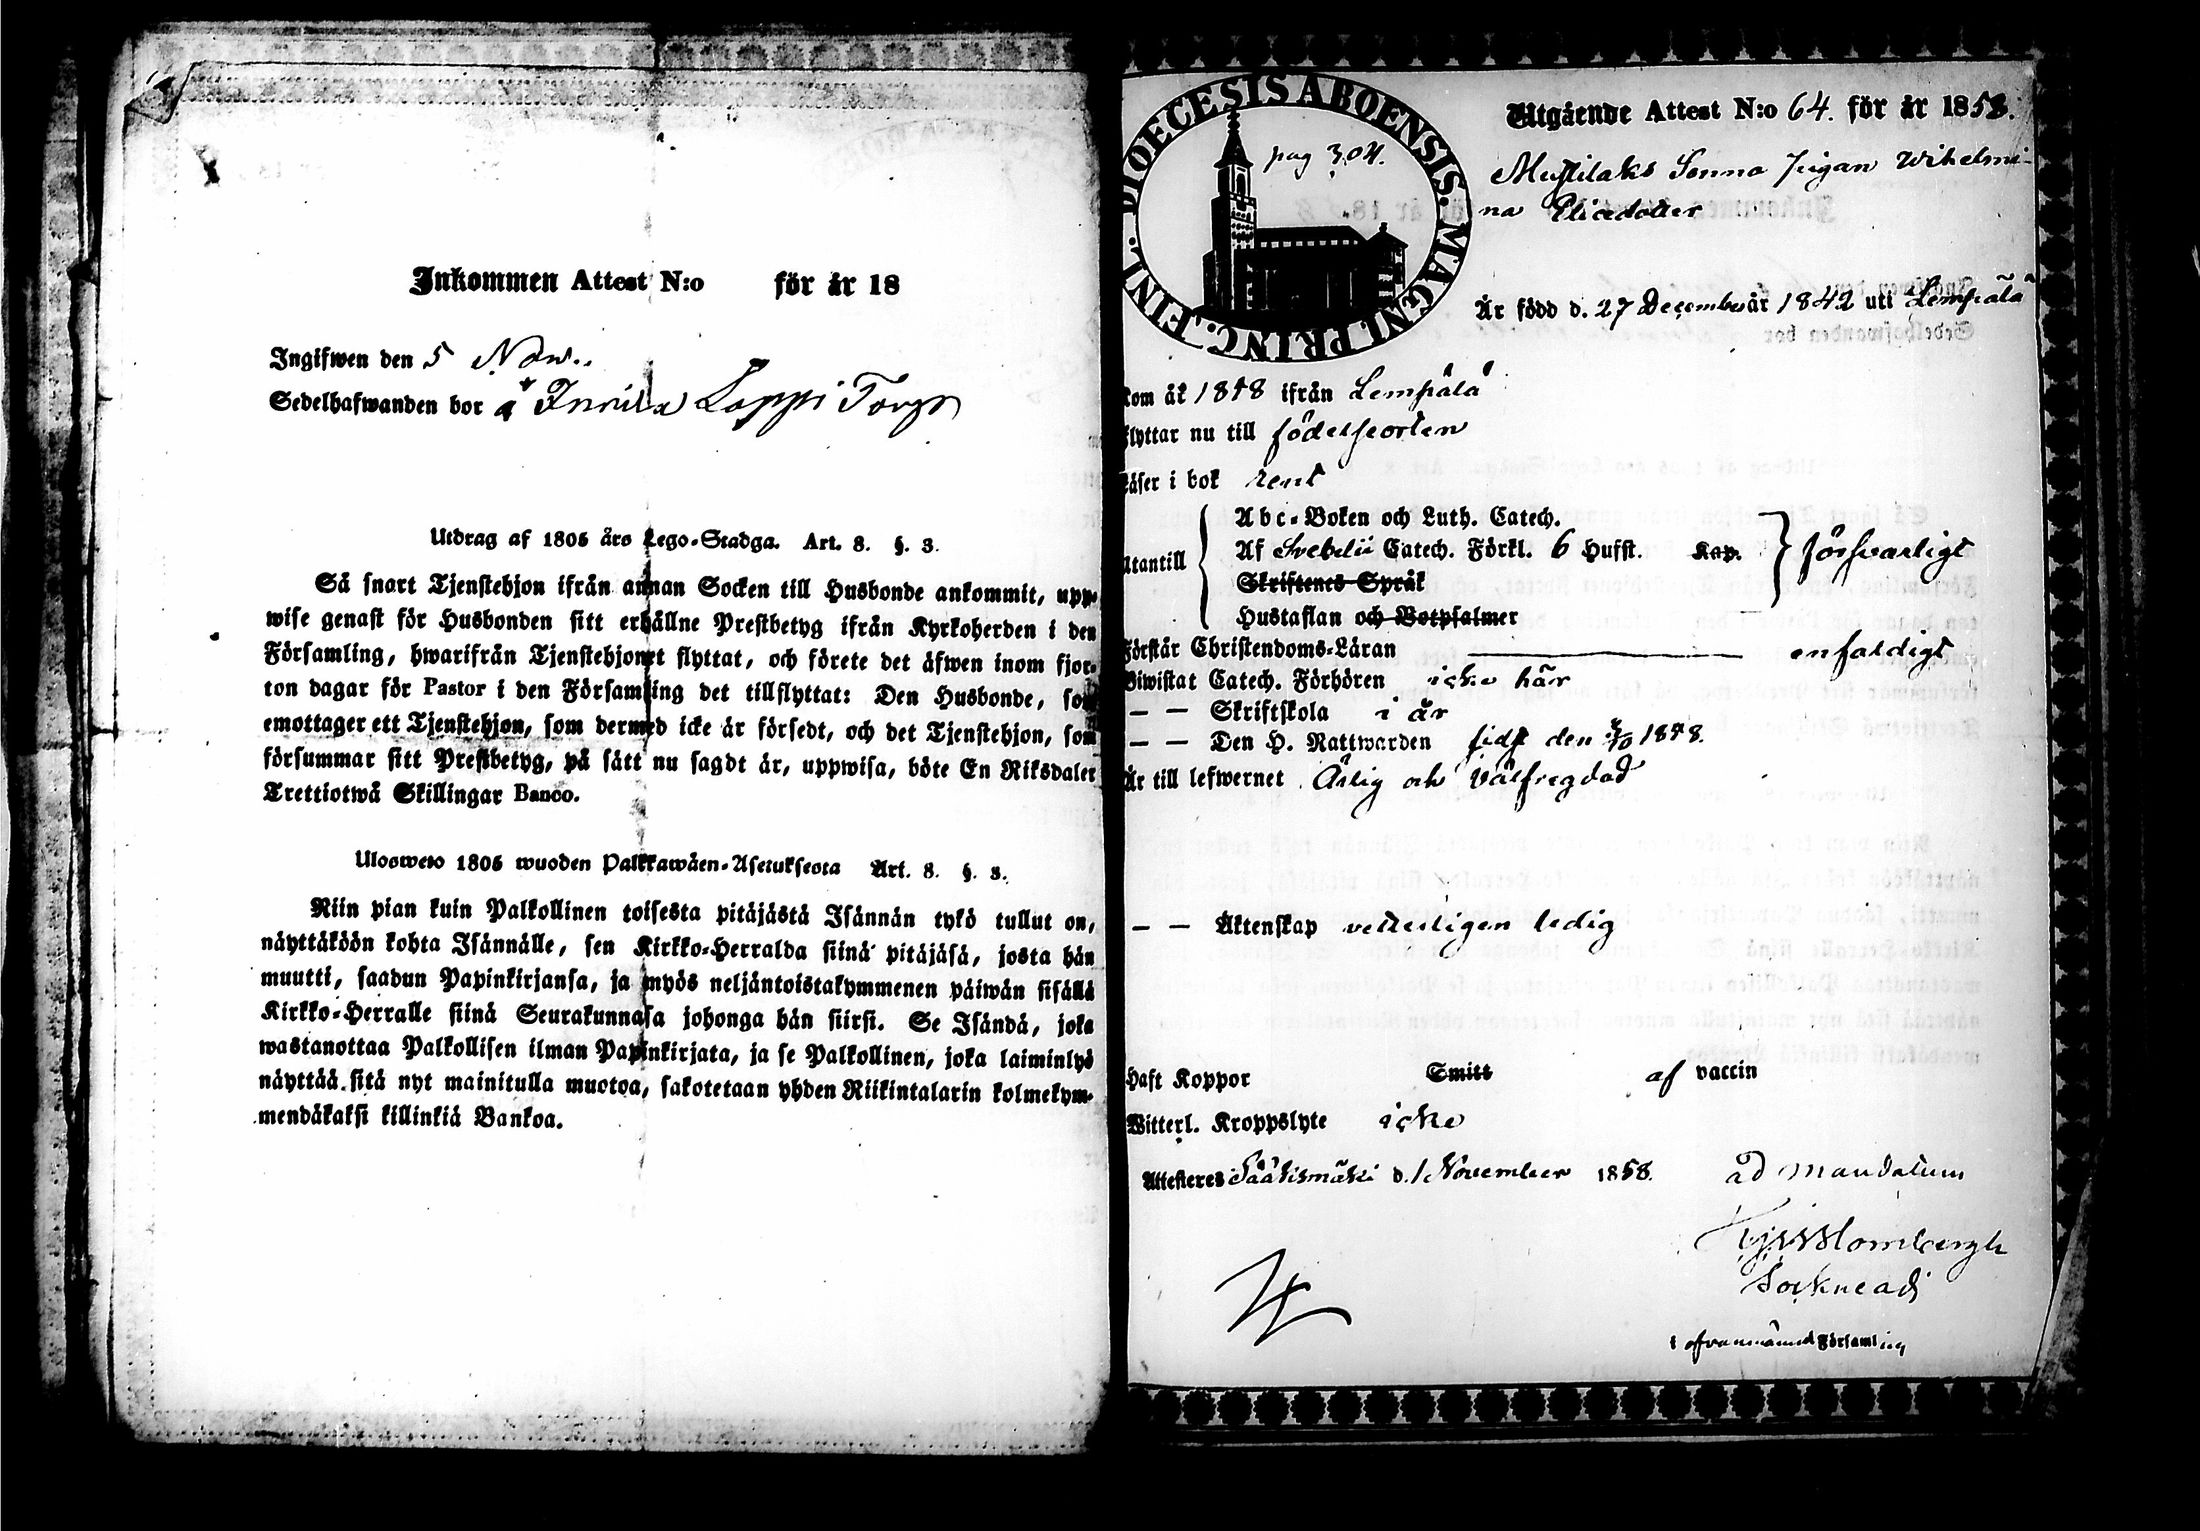 Inkommen Attest N:o för år 18
Ingifwen den 5 Now.
Sedelhafwanden bor å Innila Lappi Torp
Utdrag af 1805 års Lego-Stadga. Art. 8. §. 3.
Så snart Tjenstehjon ifrån annan Socken till Husbonde ankommit, upp-
wise genast för Husbonden sitt erhållne Prestbetyg ifrån Kyrkoherden i den
Församling, hwarifrån Tjenstehjonet flyttat, och förete det äfwen inom fjor-
ton dagar för Pastor i den Församling det tillflyttat: Den Husbonde, som
emottager ett Tjenstehjon, som dermed icke är försedt, och det Tjenstehjon, som
försummar sitt Prestbetyg, på sätt nu sagdt är, uppwisa, böte En Riksdaler
Trettiotwå Skillingar Banco.
Ulosweto 1805 wuoden Palkkawäen-Asetuksesta Art. 8. §. 3.
Niin pian kuin Palkollinen toisesta pitäjästä Isännän tykö tullut on,
näyttäköön kohta Isännälle, sen Kirkko-Herralda siinä pitäjäsä, josta hän
muutti, saadun Papinkirjansa, ja myös neljäntoistakymmenen päiwän sisällä
Kirkko-Herralle siinä Seurakunnasa johonga hän siirsi. Se Isändä, joka
wastanottaa Palkollisen ilman Papinkirjata, ja se Palkollinen, joka laiminlyö
näyttää sitä nyt mainitulla muotoa, sakotetaan yhden Riikintalarin kolmekym-
mendäkaksi killinkiä Bankoa.
DIOECESIS ABOENSIS. MAGNI PRINC. FINL.
pag 304.
Utgående Attest N:o 64. för år 1858.
Mustilaks Sonna Pigan Wilhelmi-
na Elicedotter
Är född d. 27 December år 1842 uti Lempälä
kom år 1858 ifrån Lempälä
flyttar nu till födelseorten
Läser i bok rent
Utantill
Abc-Boken och Luth. Catech.
Af Svebelii Catech. Förkl. 6 Hufst. Kap. försvarligt
Skriftenes Språk
Hustaflan och Botpsalmer
Förstår Christendoms-Läran enfaldigt
Biwistat Catech. Förhören icke här
— — Skriftskola i år
— — Den H. Nattwarden sidst den 3/10 1858.
Är till lefwernet Ärlig och Välfregdad
— — Äktenskap vetterligen ledig
Haft Koppor Smitt af vaccin
Witterl. Kroppslyte icke
Attesteras Sääksmäki d. 1 November 1858. ad mandatum
Blombergh
Sockneadj
i ofvannämnd Församling